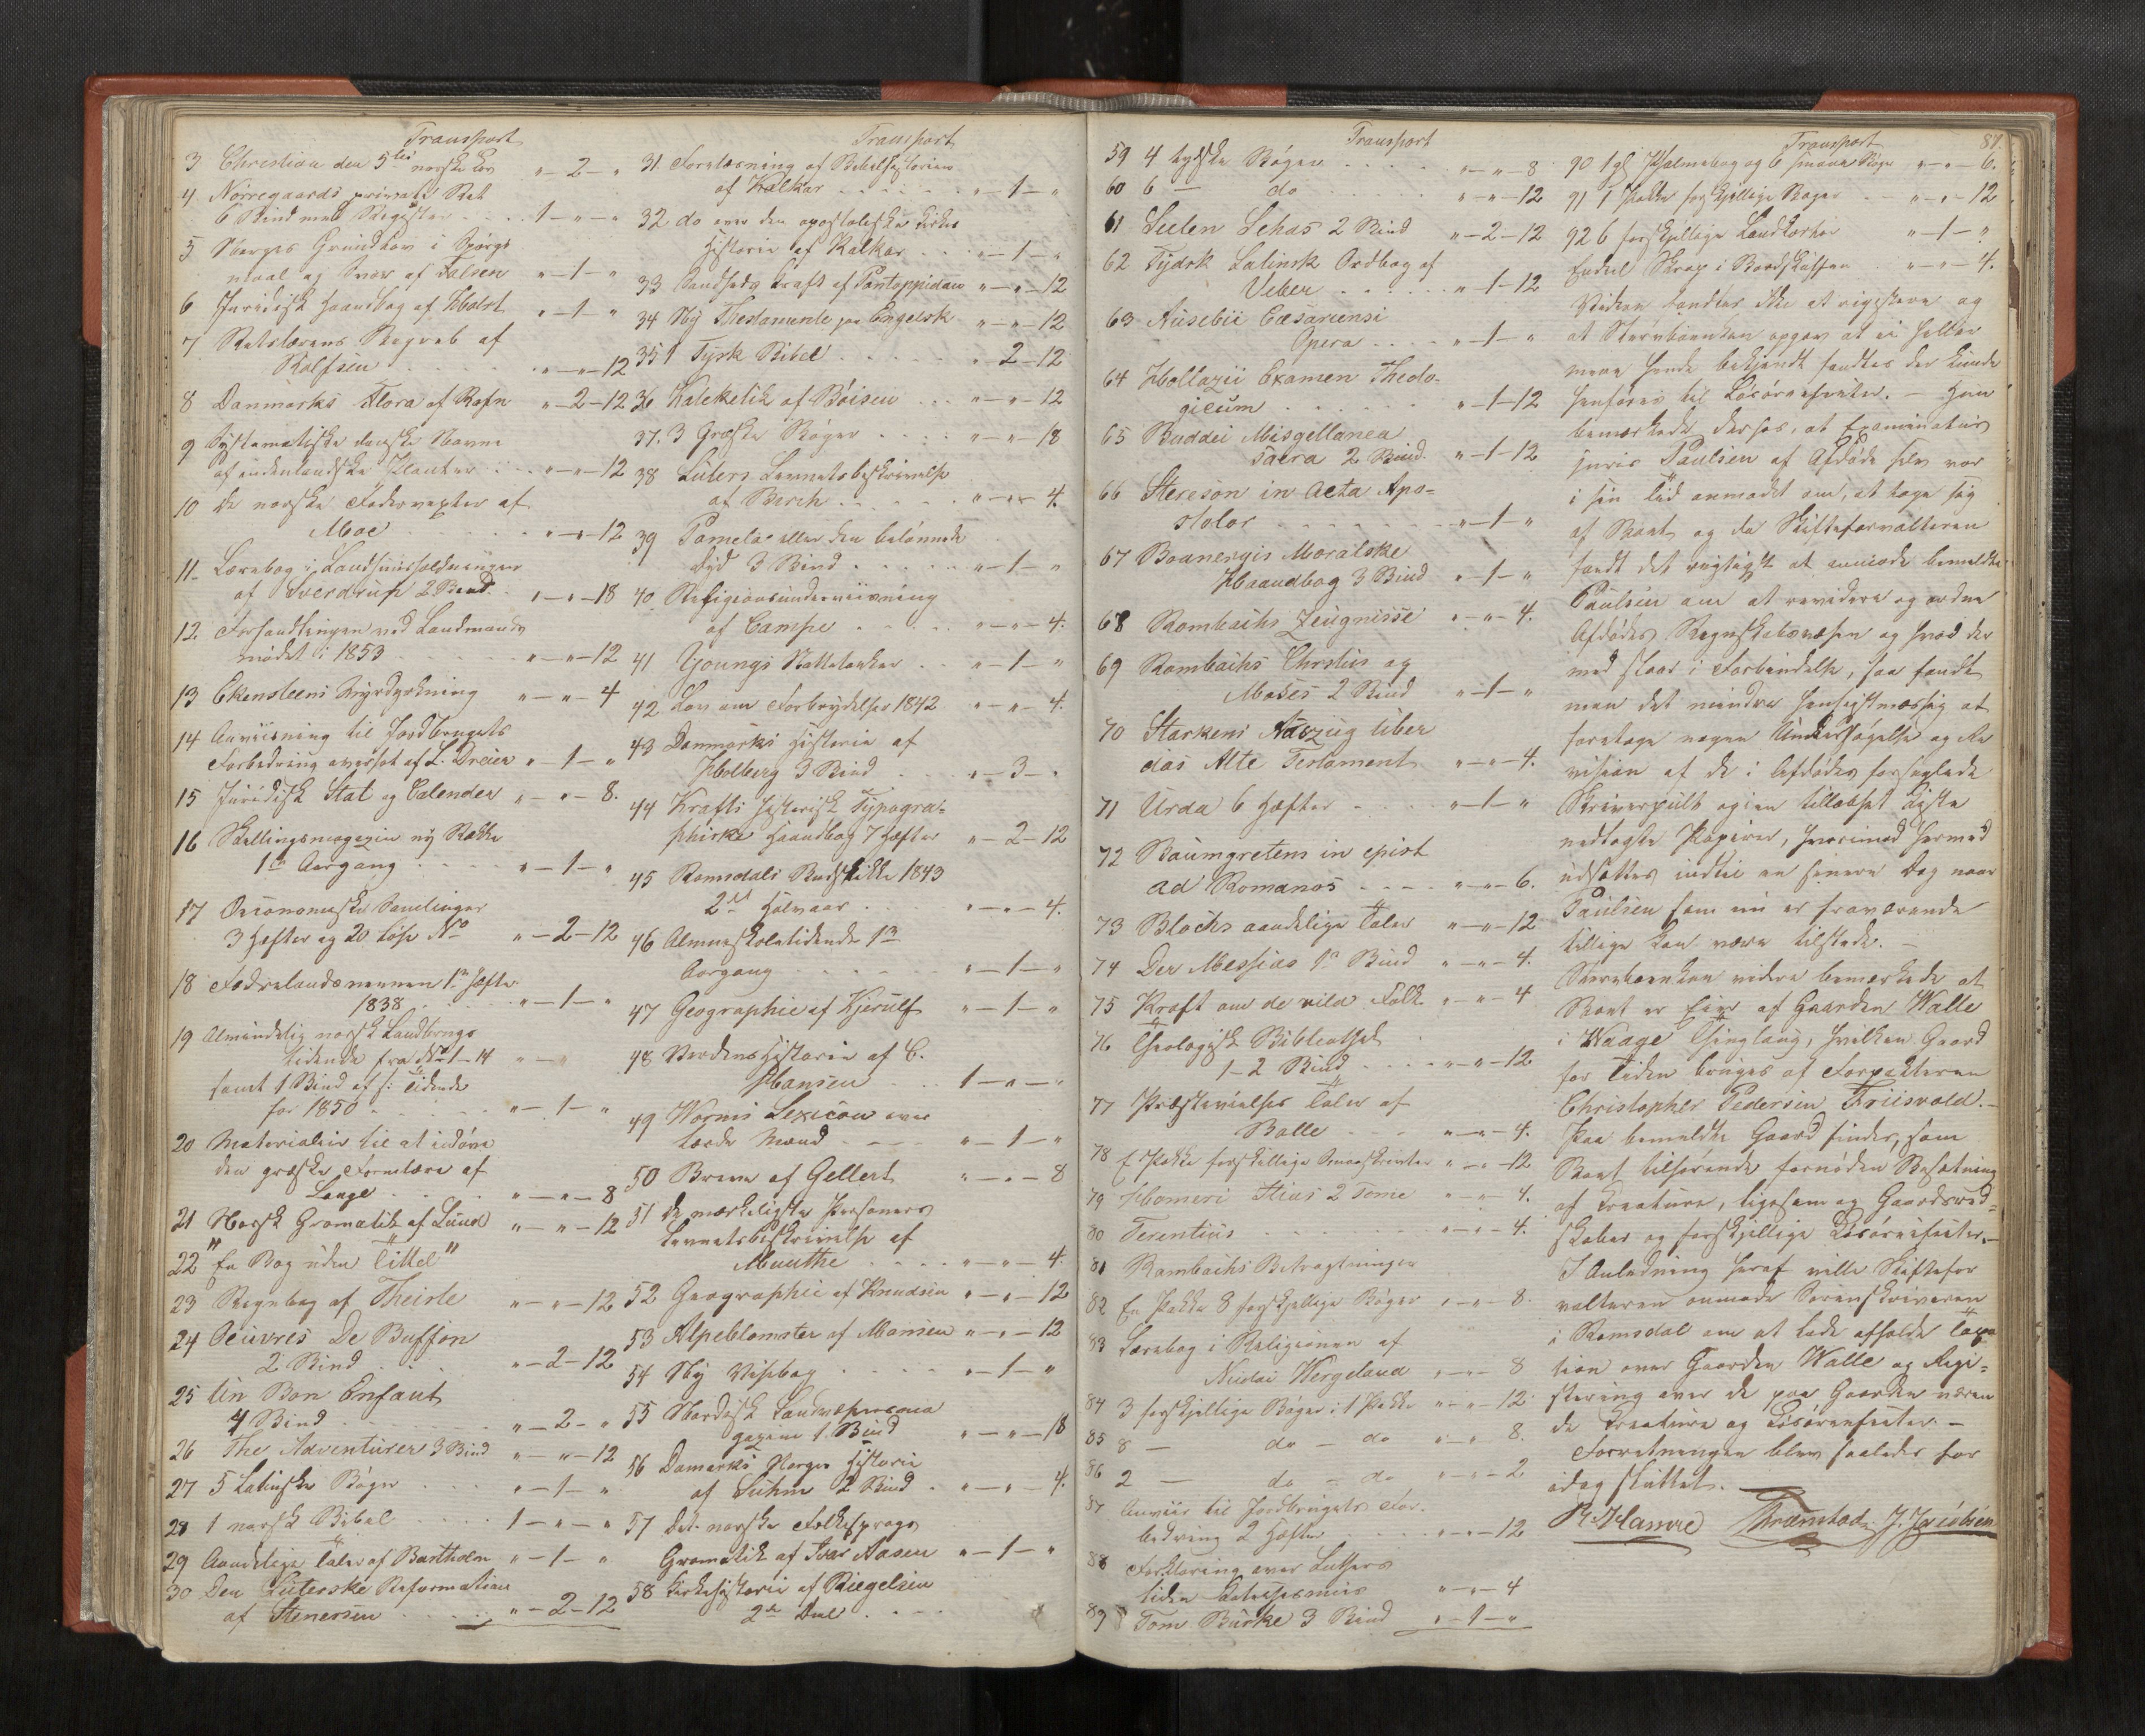 Transport
3 Christian den 5tes norske Lov " - 2 - "
4 Nørregaards private Ret
6 Bind med Register . . . 1 - " - "
5 Norges Grundlov i Spørgs
maal og Svar af Falsen " - 1 - "
6 Juridisk Haandbog af Holst " - 1 - "
7 Retslærens Begreb af
" - " - 12
8 Danmarks Flora af Rafn " - 2 - 12
9 Systematiske danske Navne
af indenlandske Planter . . " - " - 12
10 De norske Fodervexter af
Moe " - " - 12
11 Lærebog i Landhuusholdninger
af Sverdrup 2 Bind . " - " - 18
12 Forhandlingen ved Landmands
mødet i 1853 " - " - 12
13 Ekensteens Myrdyrkning " - " - 4
14 Anviisning til Jordbrugets
Forbedring oversat af L. Dreier " - 1 - "
15 Juridisk Stat og Calender " - " - 8.
16 Skillingsmagazin ny Række
1te Aargang . . . " - 1 - "
17 Oeconomiske Samlinger
3 Hefter og 20 løse No " - 2 - 12
18 1te Hefte
1838 . . . " - 1 - "
19 Almindelig norsk Landbrugs
tidende fra No 1 - 14 " - "
samt 1 Bind af s: Tidende
for 1850 . . . " - 1 - "
20 Materialier til at indøve
den græske Formlære af
Lange . . . " - " - 8
21 Norsk Gramatik af Lund " - " - 12
22 "En Bog uden Tittel"
23 Regnbog af Theiste " - " - 12
24 Oeuvres De Buffon
2 Bind . . . " - 2 - 12
25 Un Bon Enfant
4 Bind . . . " - 2 - "
26 The Adventurer 3 Bind " - " - 12
27 5 Latinske Bøger . . . " - 1 - "
28 1 norsk Bibel . . . 1 - " - "
29 Aandelige Taler af Bastholm " - 1 - "
30 Den Luterske Reformation
af Stenersen . . . " - 2 - 12
Transport
31. Forelæsning af Bibelhistorien
af Kalkar . . . " - 1 - "
32 do over den apostoliske Kirkes
Historie af Kalkar . . . " - 1 - "
33 Sandheds Kraft af Pontoppidan " - " - 12
34 Ny Thestamente paa Engelsk " - " - 12
35 1 Tysk Bibel . . . " - 2 - 12
36 Kateketik af Bóisen . . . " - " - 12
37. 3 Græske Bøger . . . " - " - 18
38 Luters Levnetsbeskrivelse
af Birch . . . " - " - 4.
39 Pamela eller den belønnede
Dyd 3 Bind . . . " - 1 - "
40 Religionsunderviisning
af Campe . . . " - " - 4.
41 Youngs Nattetanker . . " - 1 - "
42 Lov om Forbrydelser 1842 " - " - 4.
43 Danmarks Historie af
Holberg 3 Bind . . " - 3 - "
44 Krafts historisk Typogra-
phiske Haandbog 7 Hefter " - 2 - 12
45 Romsdals Budstikke 1843
2det Halvaar . . . " - " - 4.
46 Almueskoletidende 1te
Aargang . . . " - 1 - "
47 Geographie af Kjerulf " - 1 - "
48 Verdens Historie af C.
Hansen . . . 1 - " - "
49 Worms Lexicon over
lærde Mænd . . . " - 1 - "
50 Breve af Gellert " - " - 8
51 De mærkeligste Personers
Levnetsbeskrivelse af
Munthe . . . " - " - 4.
52 Geographie af Knudsen " - " - 12
53 Alpeblomster af Monsen " - " - 12
54 Ny Visebog . . . " - 1 - "
55 Nordisk
gazin 1. Bind " - " - 18
56 Danmarks Norges Historie
af Suhm 2 Bind . " - " - 4.
57 Det norske Folkesprogs
Gramatik af Ivar Aasen " - 1 - "
58 Kirkehistorie af Riegelsen
2de Deel . . .
87.
Transport
59 4 tydske Bøger . . . " - " - 8
60 6 — do . . . " - " - 12
61 2 Bind " - 2 - 12
62 Tydsk Latinsk Ordbog af
Veber . . . " - 1 - 12
63 Eusebii Cæsariensi
Opera . . . " - 1 - "
64 Hollazii Examen Theolo-
gicum . . . " - 1 - 12
65 Buddei Misgellanea
sacra 2 Bind. " - 1 - 12
66 in acta Apo-
stolor . . . " - 1 - "
67 Boanergis Moralske
Haandbog 3 Bind " - 1 - "
68 Rambachs Zeugnisse " - " - 4.
69 Rambachs Christus og
Moses 2 Bind " - 1 - "
70 Starkens Auszug über
das Alte Testament " - " - 4.
71 Urda 6 Hefter . . . " - 1 - "
72 Baumgretens in epist
ad Romanos . . . " - " - 6.
73 Blochs aandelige Taler " - " - 12
74 Der Messias 1te Bind " - " - 4.
75 Kraft om de vilde Folk " - " - 4
76 Theologisk Bibliothek
1 - 2 Bind . . . " - " - 12
77 Præstevielses Taler af
Balle . . . " - " - 4.
78 1 Pakke forskjellige Smaaskrifter " - " - 12
79 Homeri Ilias 2 Tome " - " - 4.
80 Terentius . . . " - " - 4.
81 Rambachs Betragtninger
82 En Pakke 8 forskjellige Bøger " - " - 8.
83 Lærebog i Religionen af
Nicolai Wergeland " - " - 8
84 3 forskjellige Bøger i 1 Pakke " - " - 12.
85 8 — do — do " - " - 8.
86 2 — do — do " - " - 2
87 Anviis til Jordbrugets For-
bedring 2 Hefter . . . " - " - 12
88 Forklaring over Luthers
liden Katechismus " - " - 4
89 Tom Burke 3 Bind " - 1 - "
Transport
90 1 gl Psalmebog og 6 smaae Bøger " - " - 6.
91 1 Pakke forskjellige Bøger . . " - " - 12
92 6 forskjellige Landkorter " - 1 - "
Endeel Skrap i Bordskuffen . " - " - 4.
Videre fandtes ikke at registrere og
at Stervboenken opgav at ei heller
mere hende bekjendt fandtes der kunde
henføres til Løsøreeffecter. — Hun
bemærkede derhos, at Examinatus
juris Paulsen af Afdøde selv var
i sin Tid anmodet om, at tage sig
af Boet, og da Skifteforvalteren
fandt det rigtigst at anmode bemeldte
Paulsen om at revidere og ordne
Afdødes Regnskabsvæsen og hvad der
med staar i Forbindelse, saa fandt
man det mindre hensigtmæssig at
foretage nogen Undersøgelse og Re
vision af de i Afdødes forseglede
Skriverpult og i en tillaaset Kiste
nedlagte Papirer, hvorimod hermed
udsættes indtil en senere Dag naar
Paulsen som nu er fraværende
tillige kan være tilstede. —
Stervboenken videre bemærkede at
Boet er Eier af Gaarden Walle
i Waage Thinglaug, hvilken Gaard
for Tiden bruges af Forpakteren
Christopher Pedersen Friisvold. —
Paa bemeldte Gaard findes, som
Boet tilhørende fornøden Besætning
af Kreature, ligesom og Gaardsred-
skaber og forskjellige Løsøreeffecter. —
I Anledning heraf ville Skiftefor
valteren anmode Sorenskriveren
i Romsdal om at lade afholde Taxa
tion over Gaarden Walle og Regi-
strering over de paa Gaarden væren
de Kreature og Løsøreeffecter. —
Forretningen blev saaledes for
idag sluttet.
R. Hamre Strømstad J. Jacobsen